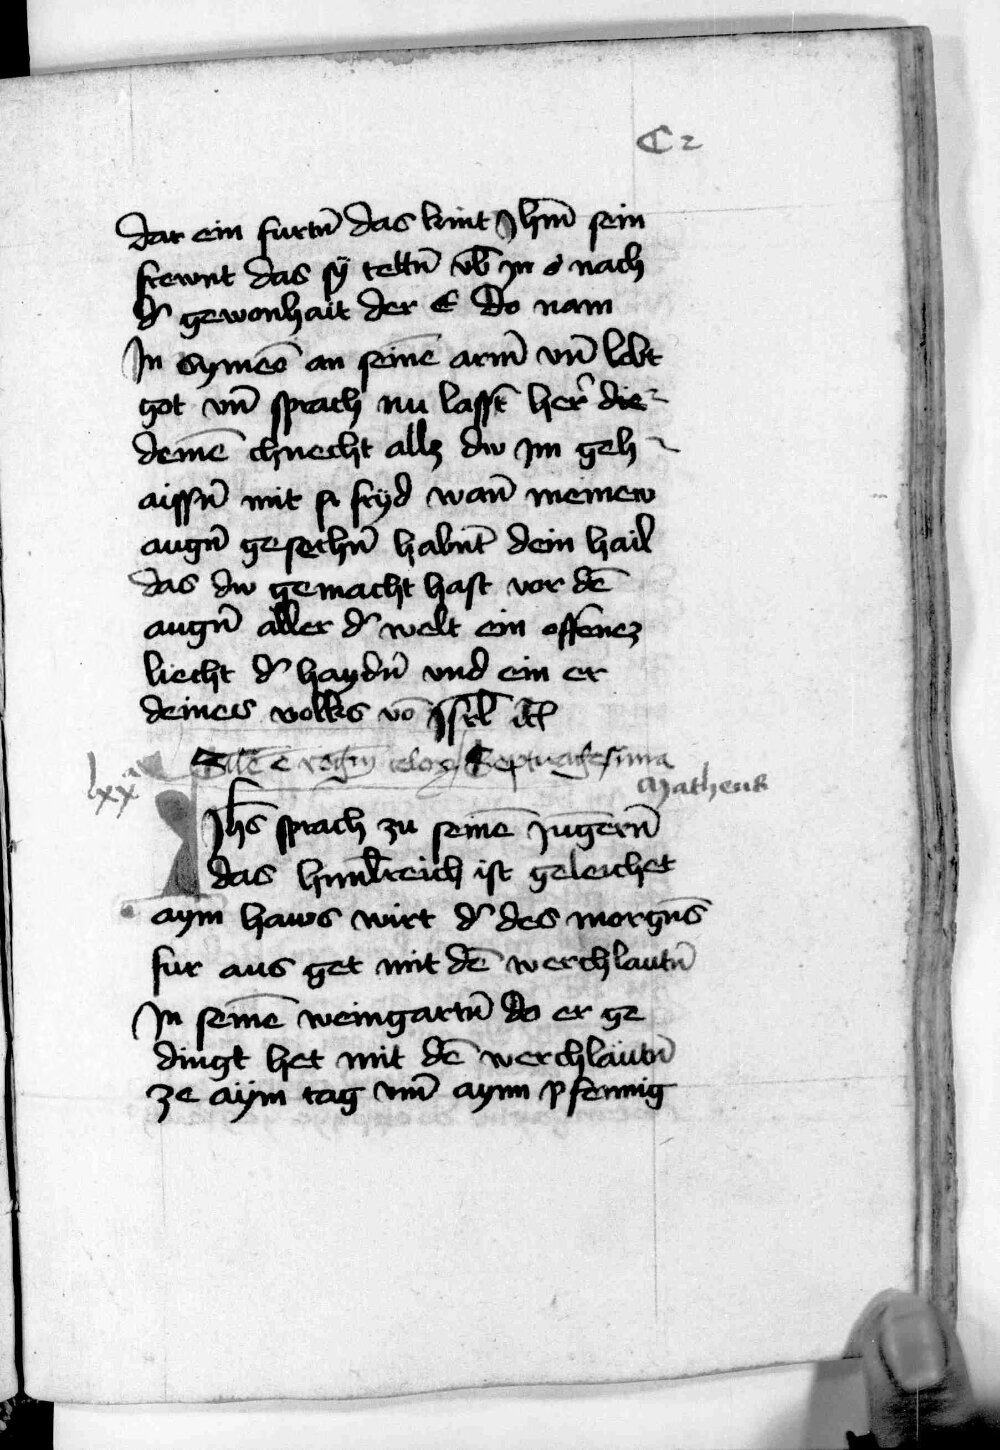 C2
dar ein furtn̄ das kint Jhm̄ sein
frewnt das sÿ tettn̄ vb̄ jn nach
d' gewonhait der E Do nam
Jn Symeō an seinē arm̄ vn̄ lobt
got vn̄ sprach nu lasst̄ her̄ die
deinē chnecht allz dw jm geh
aissn̄ mit fryd wan̄ meinew
augn̄ gesechn̄ habnt̄ dein hail
das dw gemacht hast vor dē
augn̄ aller d' welt ein offenez
liecht d' haydn̄ vnd ein er
deines volkks vō Jsrl̄
Sīlē ē regm̄ celoꝝ Septuagesima
lxxᵃ
Matheus
Jhs̄ sprach zu seinē jungern̄
das himl̄reich ist geleichet
aym haws wirt d' des morgn̄s
fur aus get mit dē werchlautn̄
Jn seinē weingartn̄ do er ge
dingt het mit dē werchläutn̄
ze aÿm tag vm̄ aynn pfennig